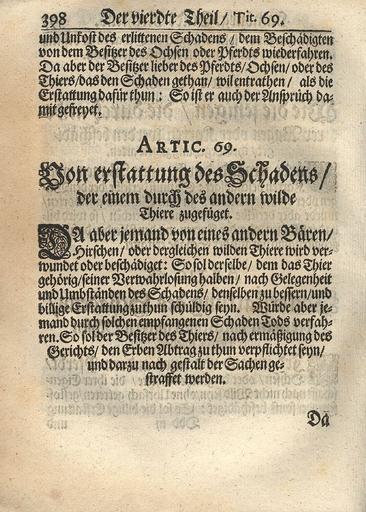 398 Der vierdte Theil / Tit. 69.
und Unkost des erlittenen Schadens / dem Beschädigten
von dem Besitzer des Ochsen oder Pferdts wiederfahren.
Da aber der Besitzer lieber des Pferdts / Ochsen / oder des
Thiers / das den Schaden gethan / wil entrathen / als die
Erstattung dafür thun: So ist er auch der Ansprüch da-
mit gefreyet.
ARTIC. 69.
Von erstattung des Schadens /
der einem durch des andern wilde
Thiere zugefüget.
DA aber jemand von eines andern Bären /
Hirschen / oder dergleichen wilden Thiere wird ver-
wundet oder beschädiget: So sol derselbe / dem das Thier
gehörig / seiner Verwahrlosung halben / nach Gelegenheit
und Umbständen des Schadens / denselben zu bessern / und
billige Erstattung zuthun schüldig seyn. Würde aber je-
mand durch solchen empfangenen Schaden Tods verfah-
ren. So sol der Besitzer des Thiers / nach ermäßigung des
Gerichts / den Erben Abtrag zu thun verpflichtet seyn /
und darzu nach gestalt der Sachen ge-
straffet werden.
Da